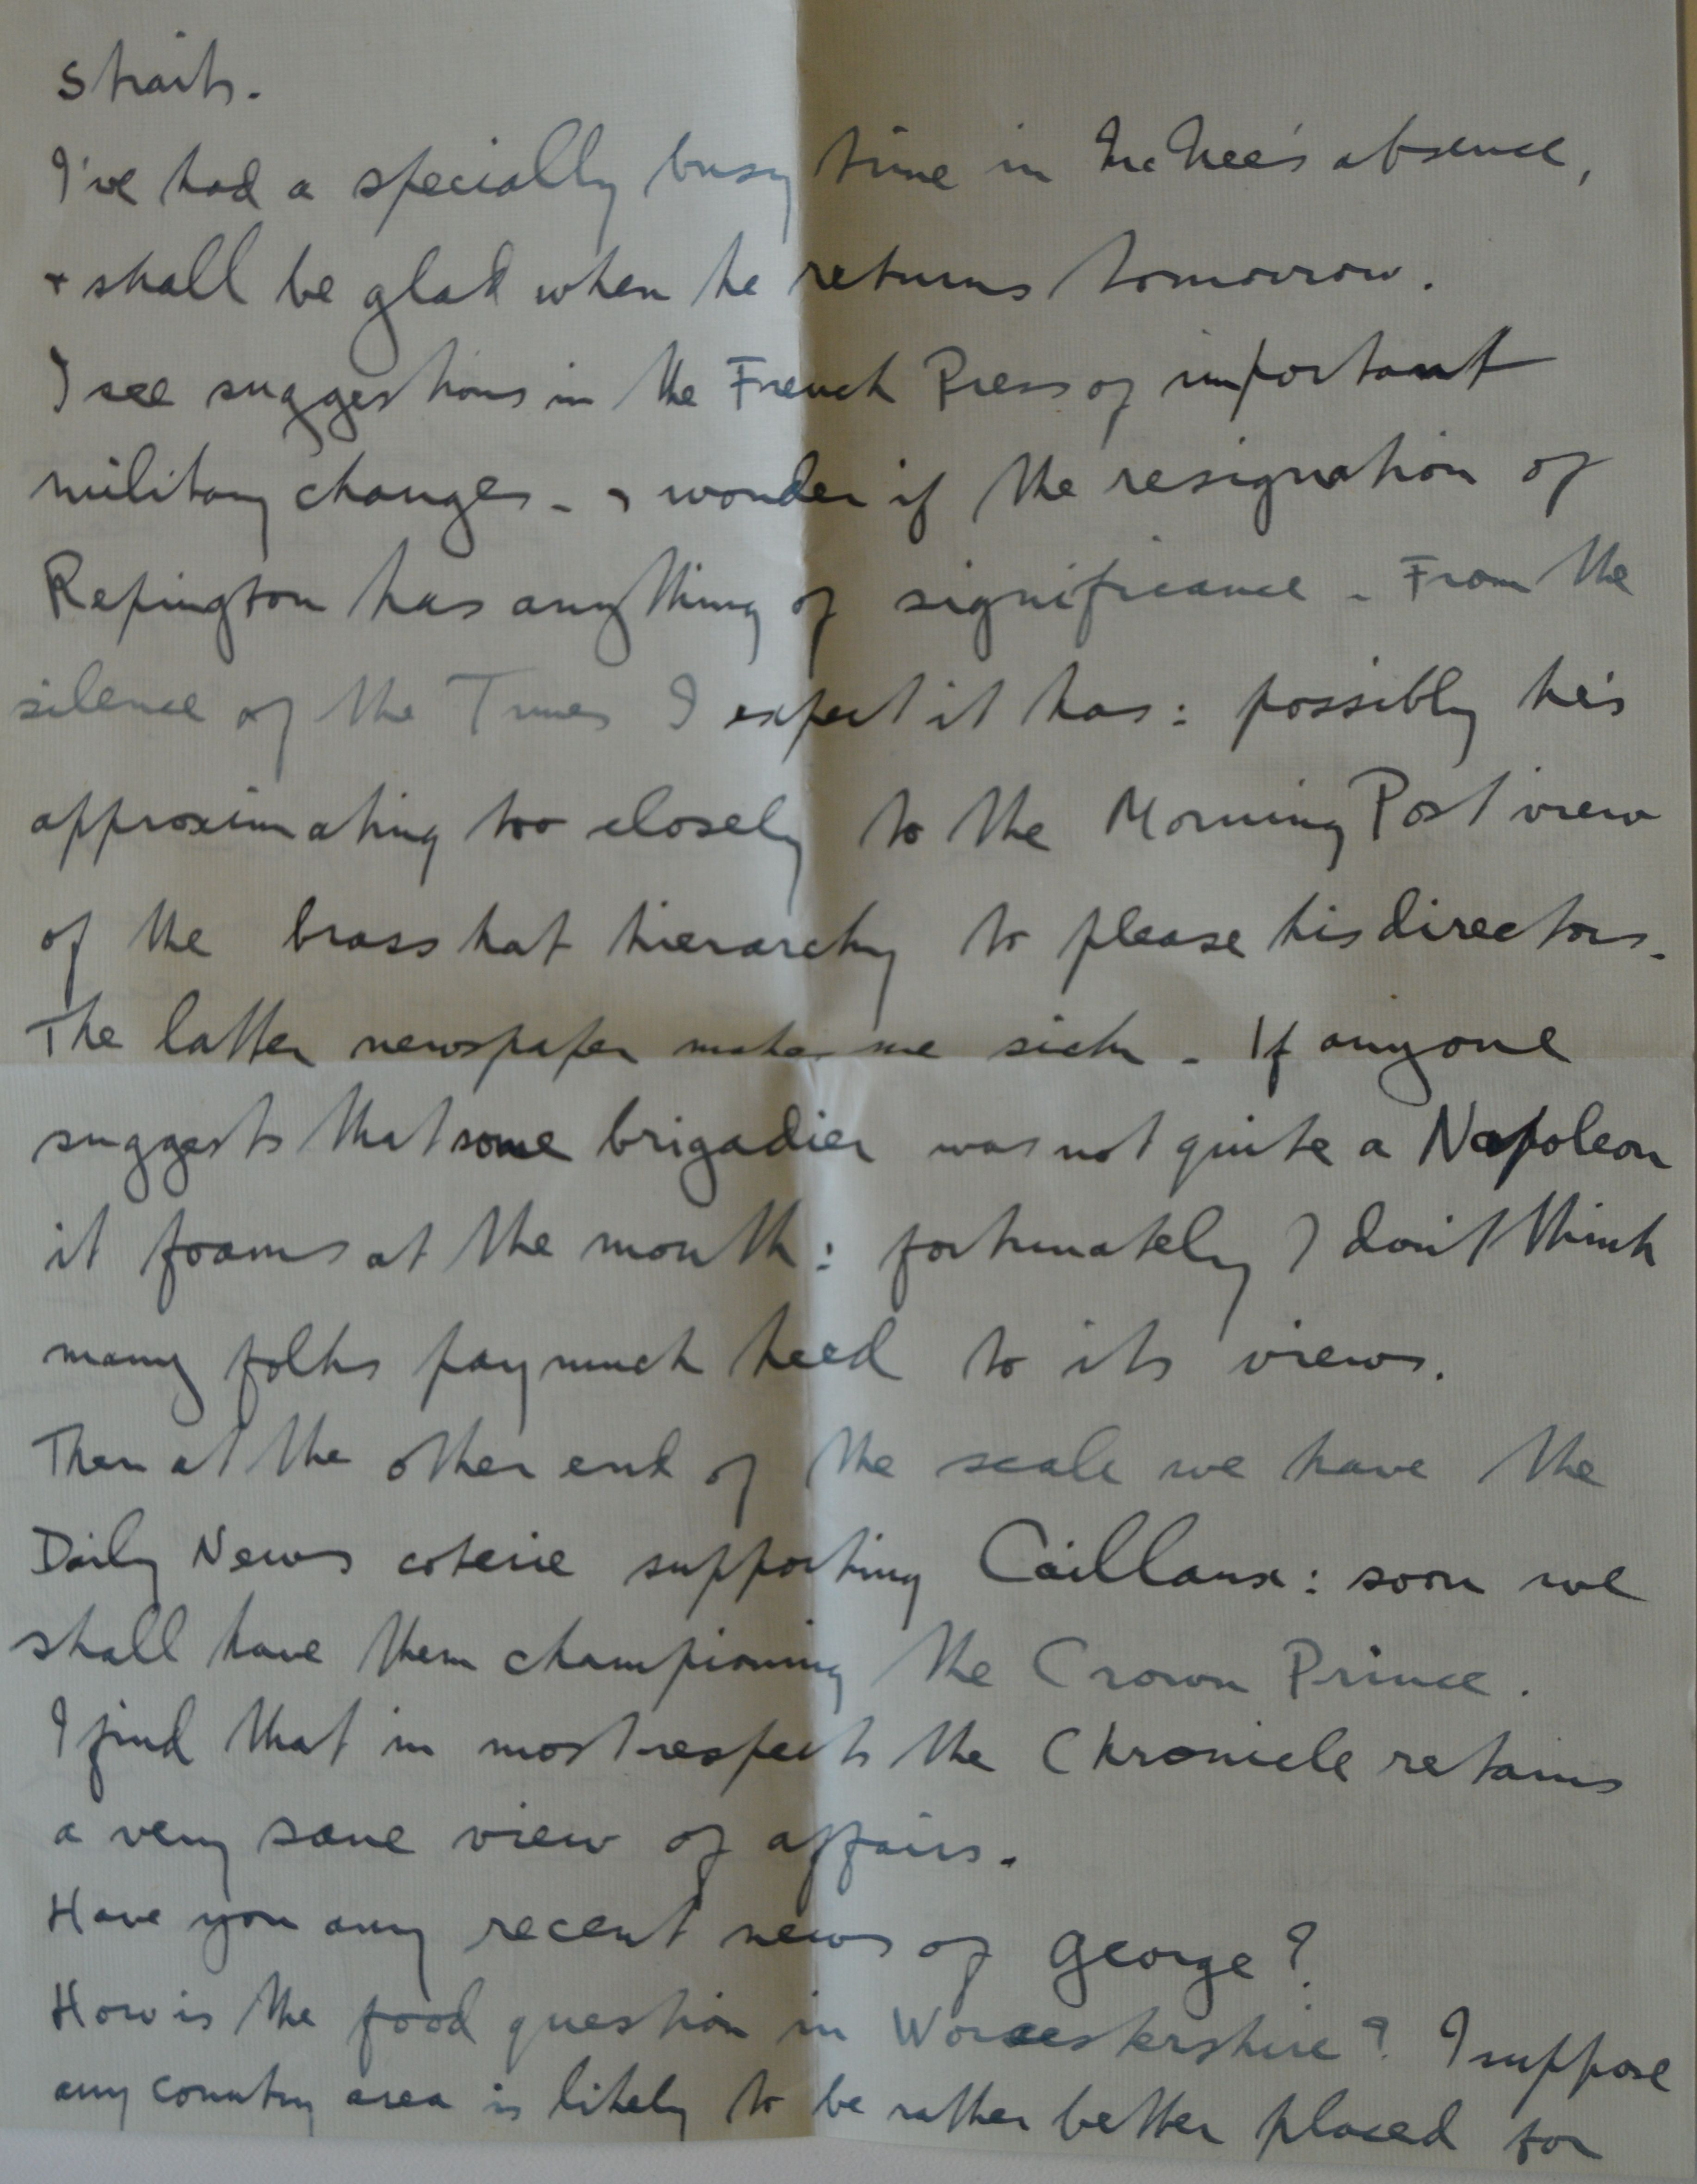 Straits.
I've had a specially busy time in McNee's absence,
+ shall be glad when he returns tomorrow.
I see suggestions in the French Press of important
military changes - & wonder if the resignation of
Repington has anything of significance - From the
silence of the Times I expect it has: possibly he's
approximating too closely to the Morning Post view
of the brass hat hierarchy to please his directors.
The latter newspaper makes me sick - If anyone
suggests that some brigadier was not quite a Napoleon
it foams at the mouth: fortunately I don't think
many folks pay much heed to its views.
Then at the other end of the scale we have the
Daily News coterie supporting Caillaux: soon we
shall have them championing the Crown Prince.
I find that in most respects the Chronicle retains
a very sane view of affairs.
Have you any recent news of George?
How is the food question in Worcestershire? I suppose
any country area is likely to be rather better placed for